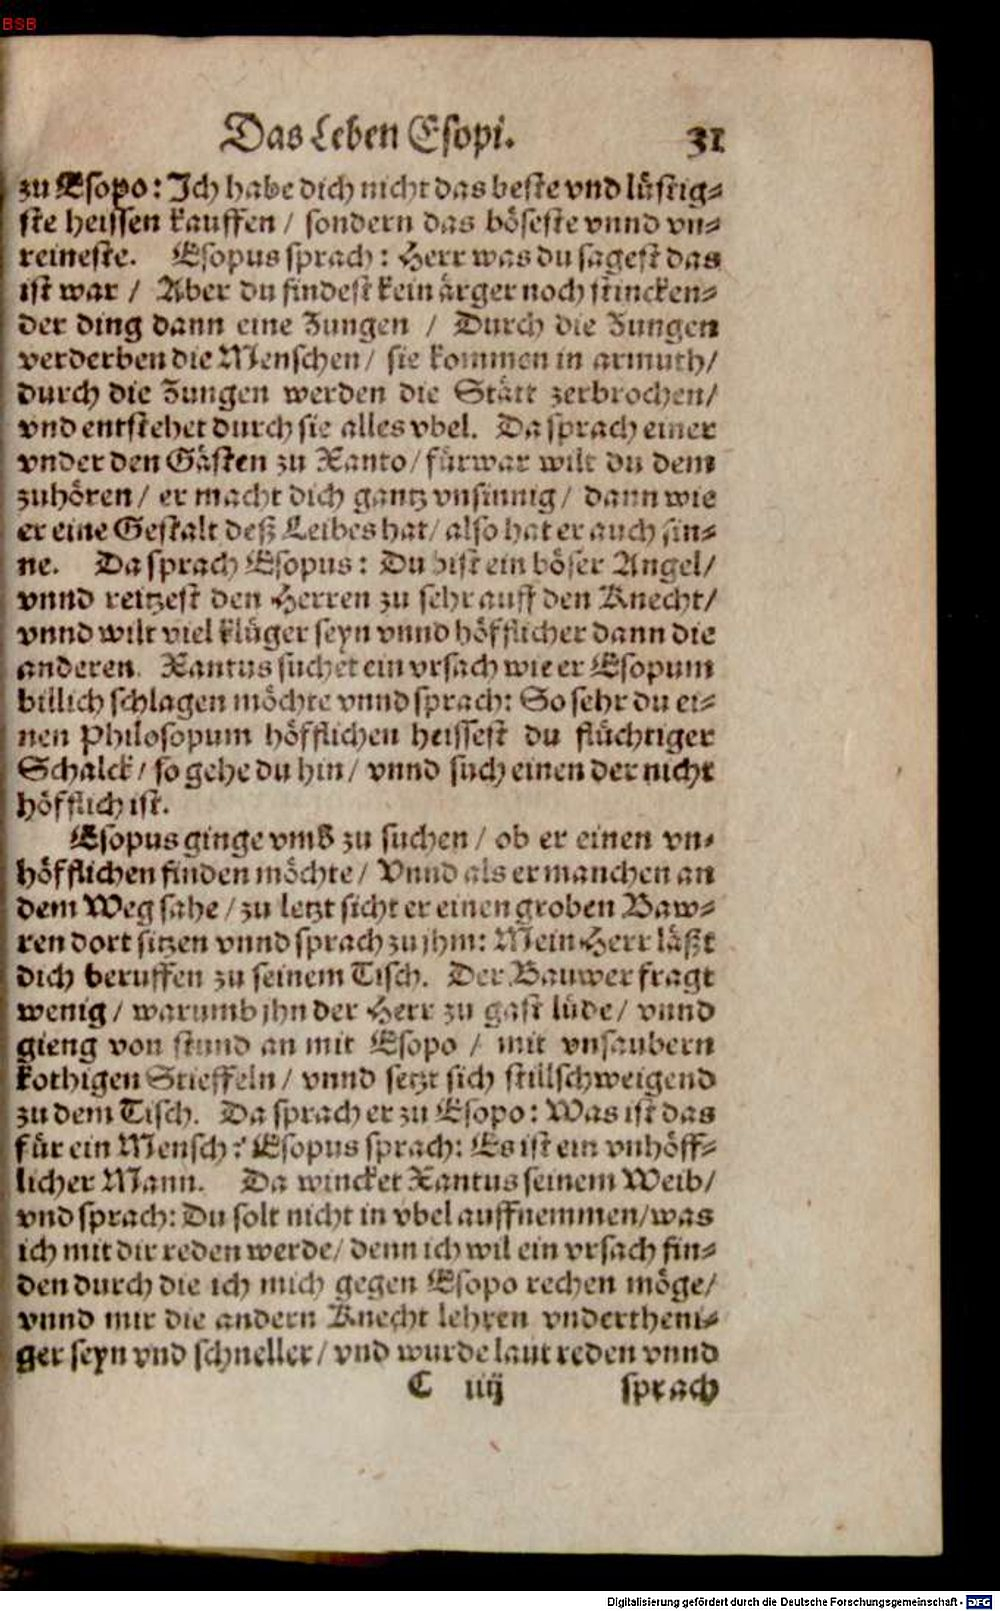 BSB
Das Leben Esopi. 31
zu Esopo: Ich habe dich nicht das beste vnd lüstig-
ste heissen kauffen / sondern das böseste vnnd vn-
reineste. Esopus sprach: Herr was du sagest das
ist war / Aber du findest kein ärger noch stincken-
der ding dann eine Zungen / Durch die Zungen
verderben die Menschen / sie kommen in armuth /
durch die Zungen werden die Stätt zerbrochen /
vnd entstehet durch sie alles vbel. Da sprach einer
vnder den Gästen zu Xanto / fürwar wilt du dem
zuhören / er macht dich gantz vnsinnig / dann wie
er eine Gestalt deß Leibes hat / also hat er auch sin-
ne. Da sprach Esopus: Du bist ein böser Angel /
vnnd reitzest den Herren zu sehr auff den Knecht /
vnnd wilt viel klüger seyn vnnd höfflicher dann die
anderen. Xantus suchet ein vrsach wie er Esopum
billich schlagen möchte vnnd sprach: So sehr du ei-
nen Philosopum höfflichen heissest du flüchtiger
Schalck / so gehe du hin / vnnd such einen der nicht
höfflich ist.
Esopus ginge vmb zu suchen / ob er einen vn-
höfflichen finden möchte / Vnnd als er manchen an
dem Weg sahe / zu letzt sicht er einen groben Baw-
ren dort sitzen vnnd sprach zu jhm: Mein Herr läßt
dich beruffen zu seinem Tisch. Der Bauwer fragt
wenig / warumb jhn der Herr zu gast lüde / vnnd
gieng von stund an mit Esopo / mit vnsaubern
kothigen Stieffeln / vnnd setzt sich stillschweigend
zu dem Tisch. Da sprach er zu Esopo: Was ist das
für ein Mensch? Esopus sprach: Es ist ein vnhöff-
licher Mann. Da wincket Xantus seinem Weib /
vnd sprach: Du solt nicht in vbel auffnemmen / was
ich mit dir reden werde / denn ich wil ein vrsach fin-
den durch die ich mich gegen Esopo rechen möge /
vnnd mir die andern Knecht lehren vndertheni-
ger seyn vnd schneller / vnd wurde laut reden vnnd
C iiij sprach
Digitalisierung gefördert durch die Deutsche Forschungsgemeinschaft - DFG